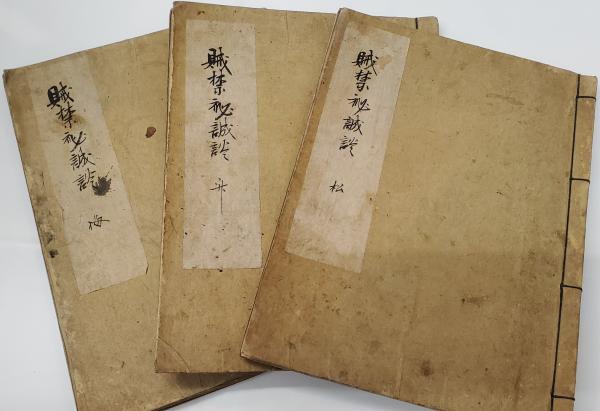 賊禁秘誠談 松
賊禁秘誠談 竹
賊禁秘誠談 梅